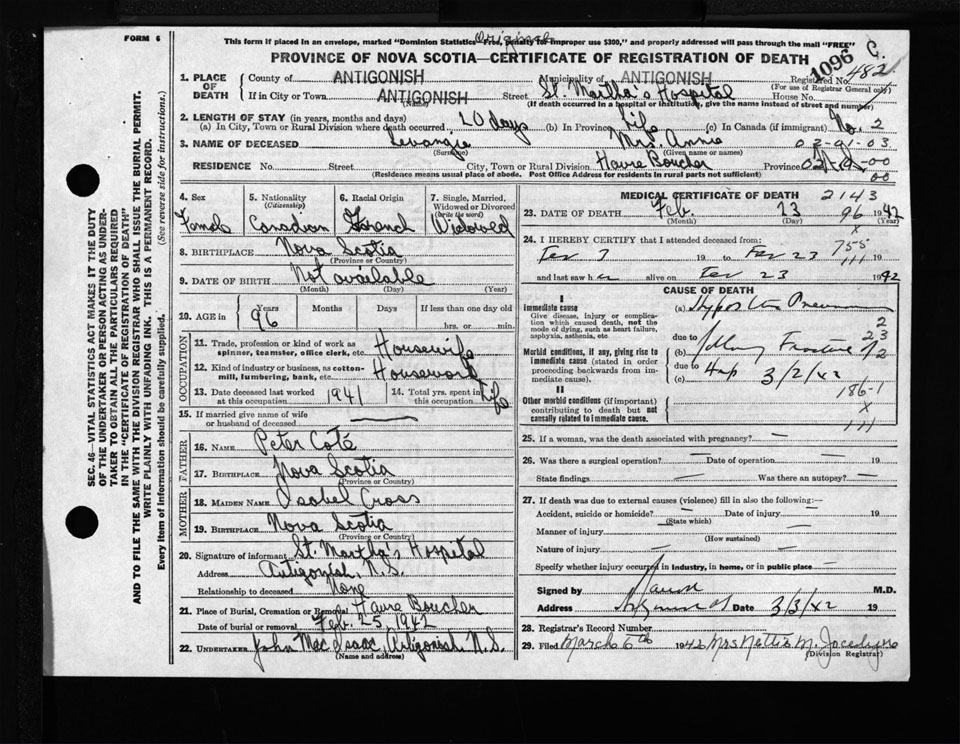 FORM 6
Original
This form if placed in an envelope, marked "Dominion Statistics Free, penalty for improper use $300," and properly addressed will pass through the mail "FREE"
PROVINCE OF NOVA SCOTIA—CERTIFICATE OF REGISTRATION OF DEATH
1096 C.
482
1. PLACE OF DEATH
County of ANTIGONISH Municipality of ANTIGONISH Registered No.
(For use of Registrar General only)
If in City or Town ANTIGONISH Street St. Martha's Hospital House No.
(Name) (If death occurred in a hospital or institution, give the name instead of street and number)
2. LENGTH OF STAY (in years, months and days)
(a) In City, Town or Rural Division where death occurred 20 days (b) In Province Life (c) In Canada (if immigrant) No. 2
3. NAME OF DECEASED Levangie Mrs. Annie 02-91-03
(Surname) (Given name or names)
RESIDENCE No. Street City, Town or Rural Division Havre Boucher Province
(Residence means usual place of abode. Post Office Address for residents in rural parts not sufficient)
00
4. Sex Female
5. Nationality (Citizenship) Canadian
6. Racial Origin French
7. Single, Married, Widowed or Divorced (Write the word) Widowed
8. BIRTHPLACE Nova Scotia
(Province or Country)
9. DATE OF BIRTH Not available
(Month) (Day) (Year)
10. AGE in Years 96 Months Days If less than one day old
hrs. or min.
OCCUPATION
11. Trade, profession or kind of work as spinner, teamster, office clerk, etc. Housewife
12. Kind of industry or business, as cotton-mill, lumbering, bank, etc. Housework
13. Date deceased last worked at this occupation 1941 14. Total yrs. spent in this occupation Life
15. If married give name of wife or husband of deceased —
FATHER
16. NAME Peter Coté
17. BIRTHPLACE Nova Scotia
MOTHER
18. MAIDEN NAME Isabel Cross
19. BIRTHPLACE Nova Scotia
(Province or Country)
20. Signature of informant St. Martha's Hospital
Address Antigonish, N.S.
Relationship to deceased None
21. Place of Burial, Cremation or Removal Havre Boucher
Date of burial or removal Feb. 25, 1942
22. UNDERTAKER John MacIsaac, Antigonish, N.S.
(Name and address)
MEDICAL CERTIFICATE OF DEATH 2143
23. DATE OF DEATH Feb. 23 96 1942
(Month) (Day) (Year)
24. I HEREBY CERTIFY that I attended deceased from:
Feb 3 19 to Feb 23 19
755
111
and last saw h er alive on Feb 23 1942
CAUSE OF DEATH
I
Immediate cause
Give disease, injury or complication which caused death, not the mode of dying, such as heart failure, asphyxia, asthenia, etc
(a)
due to
Morbid conditions, if any, giving rise to immediate cause (stated in order proceeding backwards from immediate cause).
(b)
due to
(c) 3/2/42
II
Other morbid conditions (if important) contributing to death but not causally related to immediate cause.
186-1
x
111
25. If a woman, was the death associated with pregnancy? —
26. Was there a surgical operation? — Date of operation — 19
State findings — Was there an autopsy? —
27. If death was due to external causes (violence) fill in also the following:—
Accident, suicide or homicide? — Date of injury — 19
(State which)
Manner of injury —
(How sustained)
Nature of injury —
Specify whether injury occurred in industry, in home, or in public place —
Signed by M.D.
Address Date 3/3/42 19
28. Registrar's Record Number
29. Filed March 6th 1942 Mrs Nettie M. Jocelyn
(Division Registrar)
SEC. 46—VITAL STATISTICS ACT MAKES IT THE DUTY
OF THE UNDERTAKER OR PERSON ACTING AS UNDER-
TAKER TO OBTAIN ALL THE PARTICULARS REQUIRED
IN THE "CERTIFICATE OF REGISTRATION OF DEATH"
AND TO FILE THE SAME WITH THE DIVISION REGISTRAR WHO SHALL ISSUE THE BURIAL PERMIT.
WRITE PLAINLY WITH UNFADING INK. THIS IS A PERMANENT RECORD.
Every item of Information should be carefully supplied. (See reverse side for instructions.)